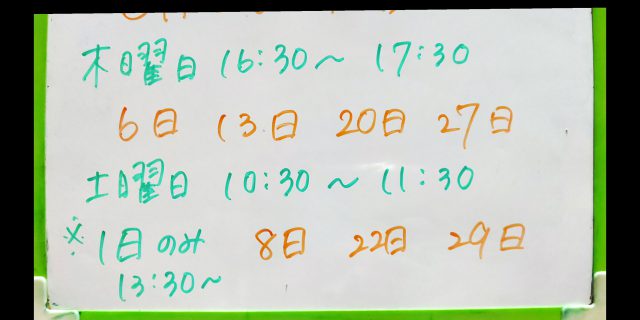 木曜日 16:30～ 17:30
6日 13日 20日 27日
土曜日 10:30 ～ 11:30
※1日のみ 8日 22日 29日
13:30～